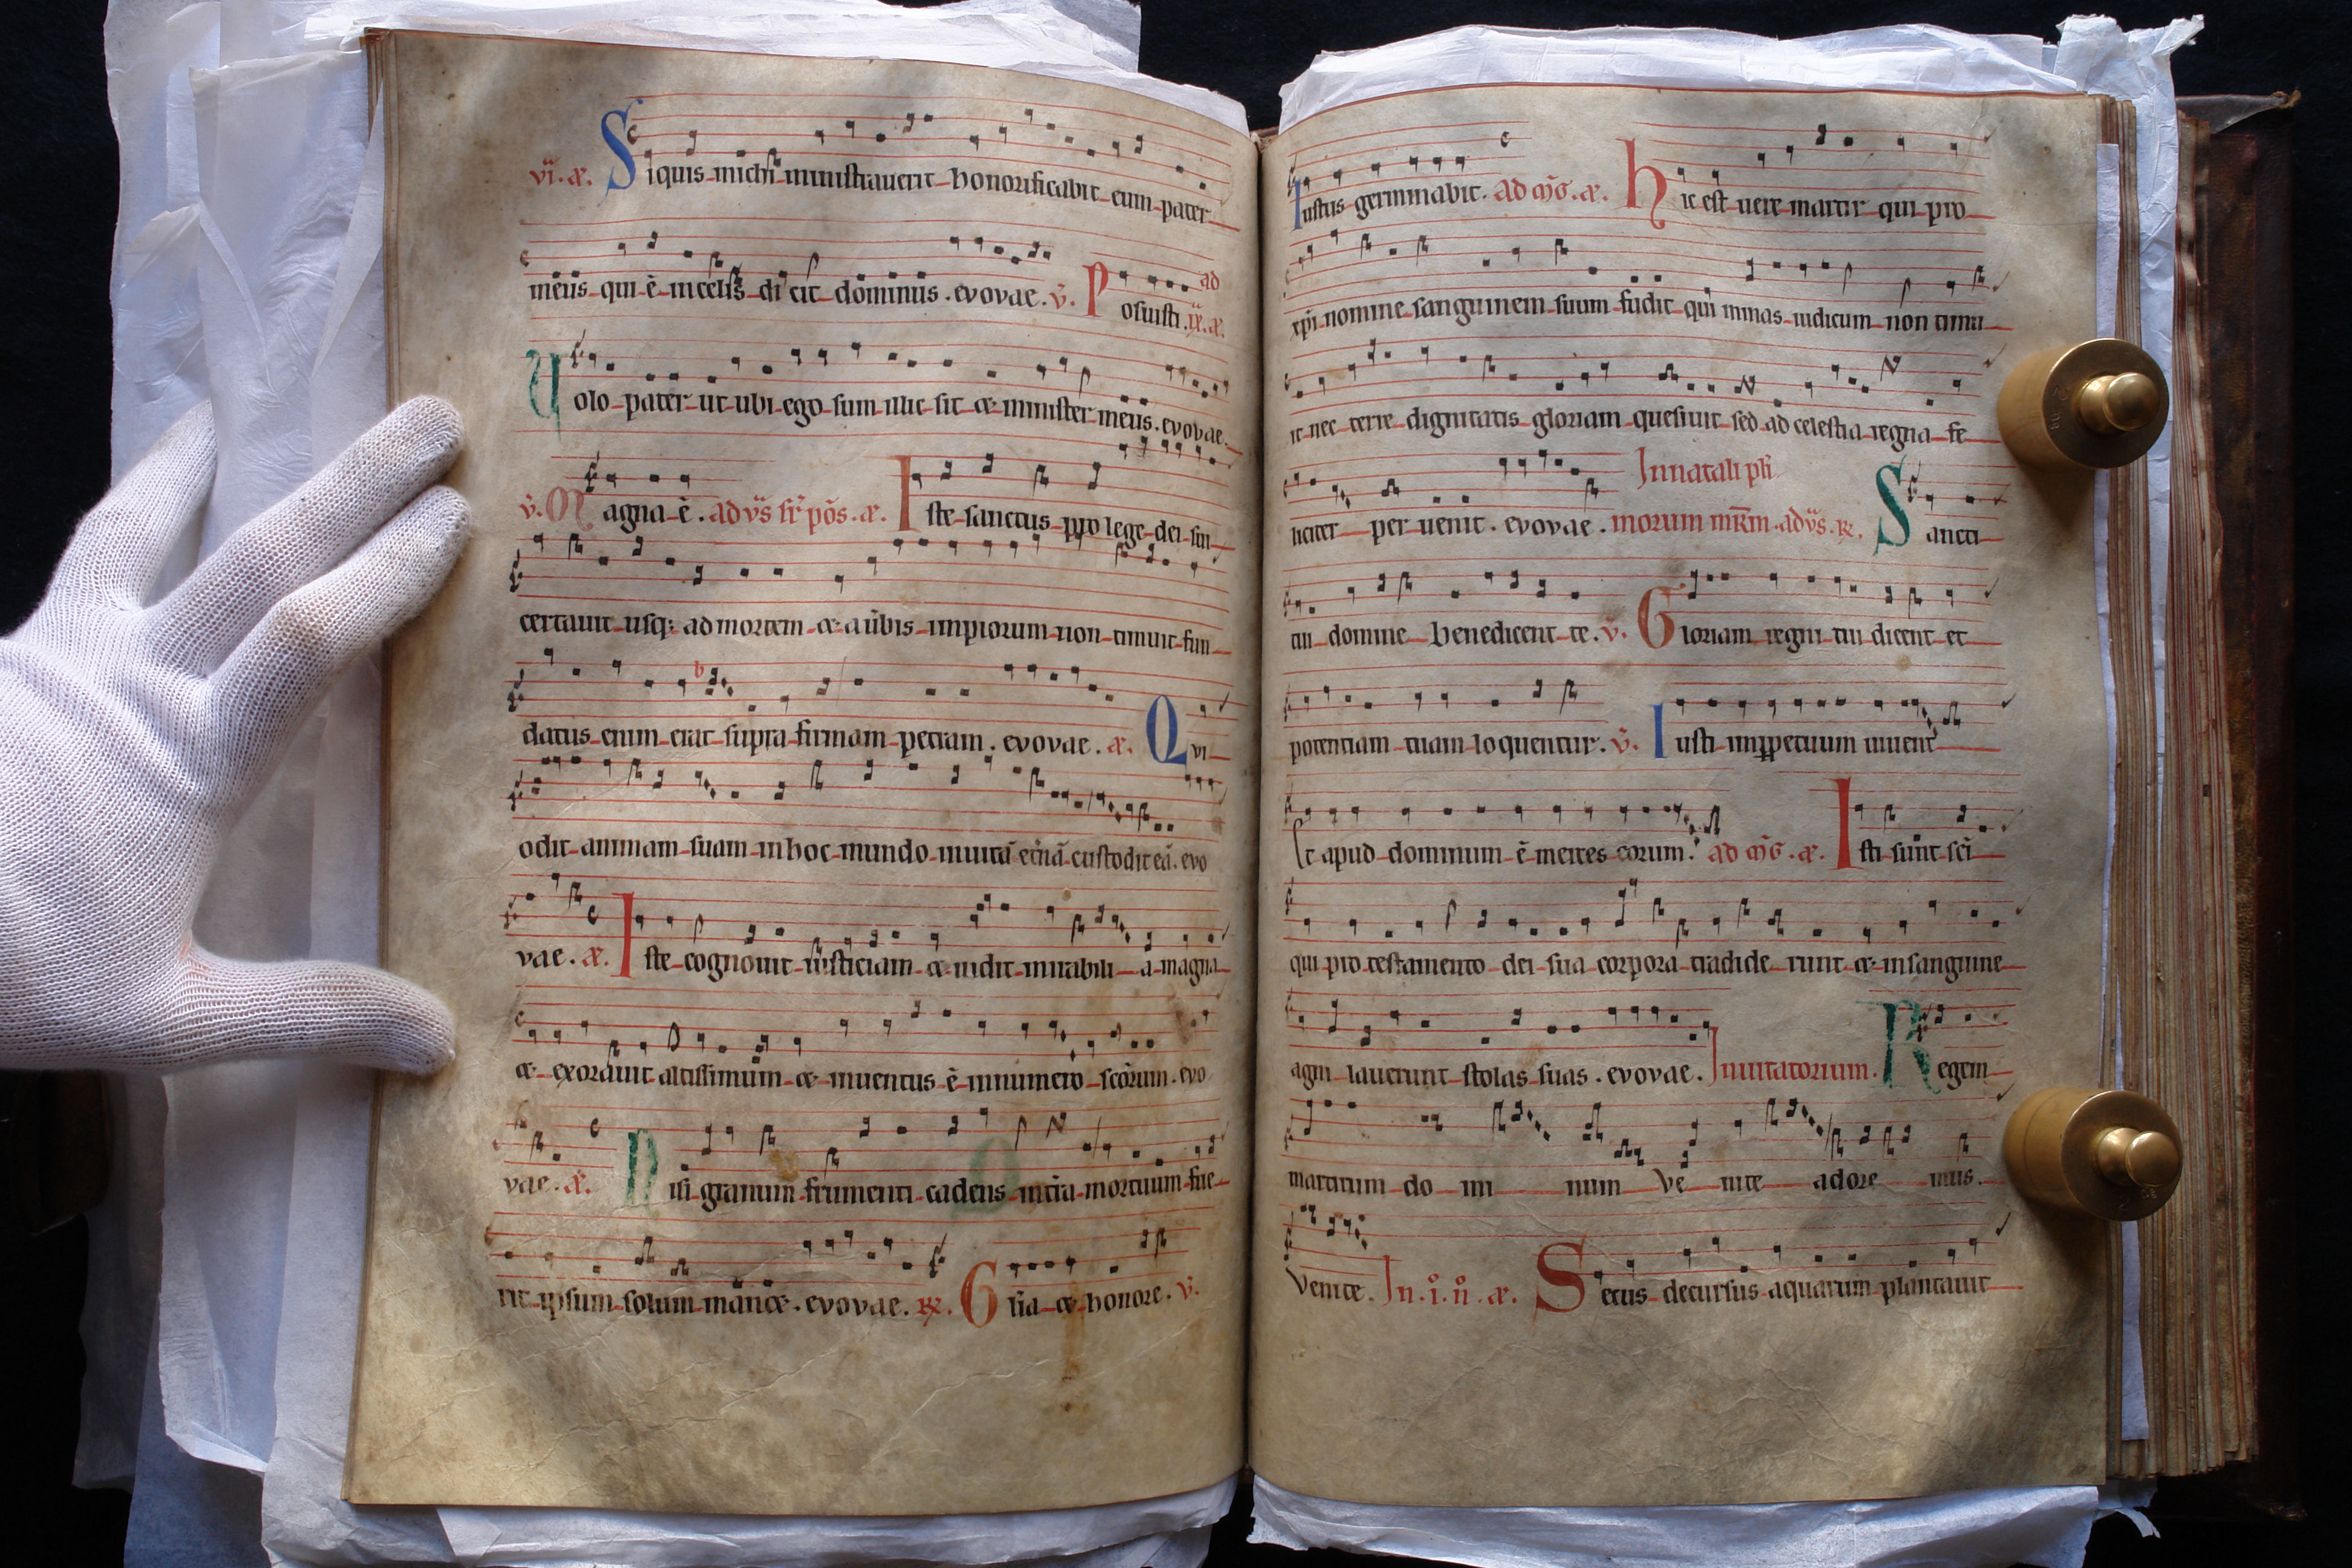 vi. a. Siquis michi ministraverit honorificabit eum pater
meus qui ē in celis dicit dominus. evovae. v̄. Posuisti. ad
ix. a.
Volo pater ut ubi ego sum illic sit et minister meus. evovae.
v̄. Magna ē. ad vs̄ sr̄ pōs. a. Iste sanctus pro lege dei sui
certauit usq; ad mortem et a ūbis impiorum non timuit fun
datus enim erat supra firmam petram. evovae. a. Qvi
odit animam suam in hoc mundo in uitā et̄nā custodit eā. evo
vae. a. Iste cognouit iusticiam et uidit mirabilia magna
et exorauit altissimum et inuentus ē in numero sc̄orum. evo
vae. a. Nisi granum frumenti cadens in t̄ra mortuum fue
rit ipsum solum manet. evovae. R. Gl̄ia et honore. v̄.
Iustus germinabit. ad m̄g. a. Hic est uere martir qui pro
xp̄i nomine sanguinem suum fudit qui minas iudicum non timu
it nec terre dignitatis gloriam quesiuit sed ad celestia regna fe
liciter peruenit. evovae. In natali pl̄i
morum mr̄m. ad vs̄. R. Sancti
tui domine benedicent te. v̄. Gloriam regni tui dicent et
potentiam tuam loquentur. v̄. Iusti imperpetuum uiuent
Et apud dominum ē merces eorum. ad m̄g. a. Isti sunt sc̄i
qui pro testamento dei sua corpora tradiderunt et in sanguine
agni lauerunt stolas suas. evovae. Inuitatorium. Regem
martirum do mi num Ve nite adore mus.
Venite. In. i. n̊. a. Secus decursus aquarum plantauit